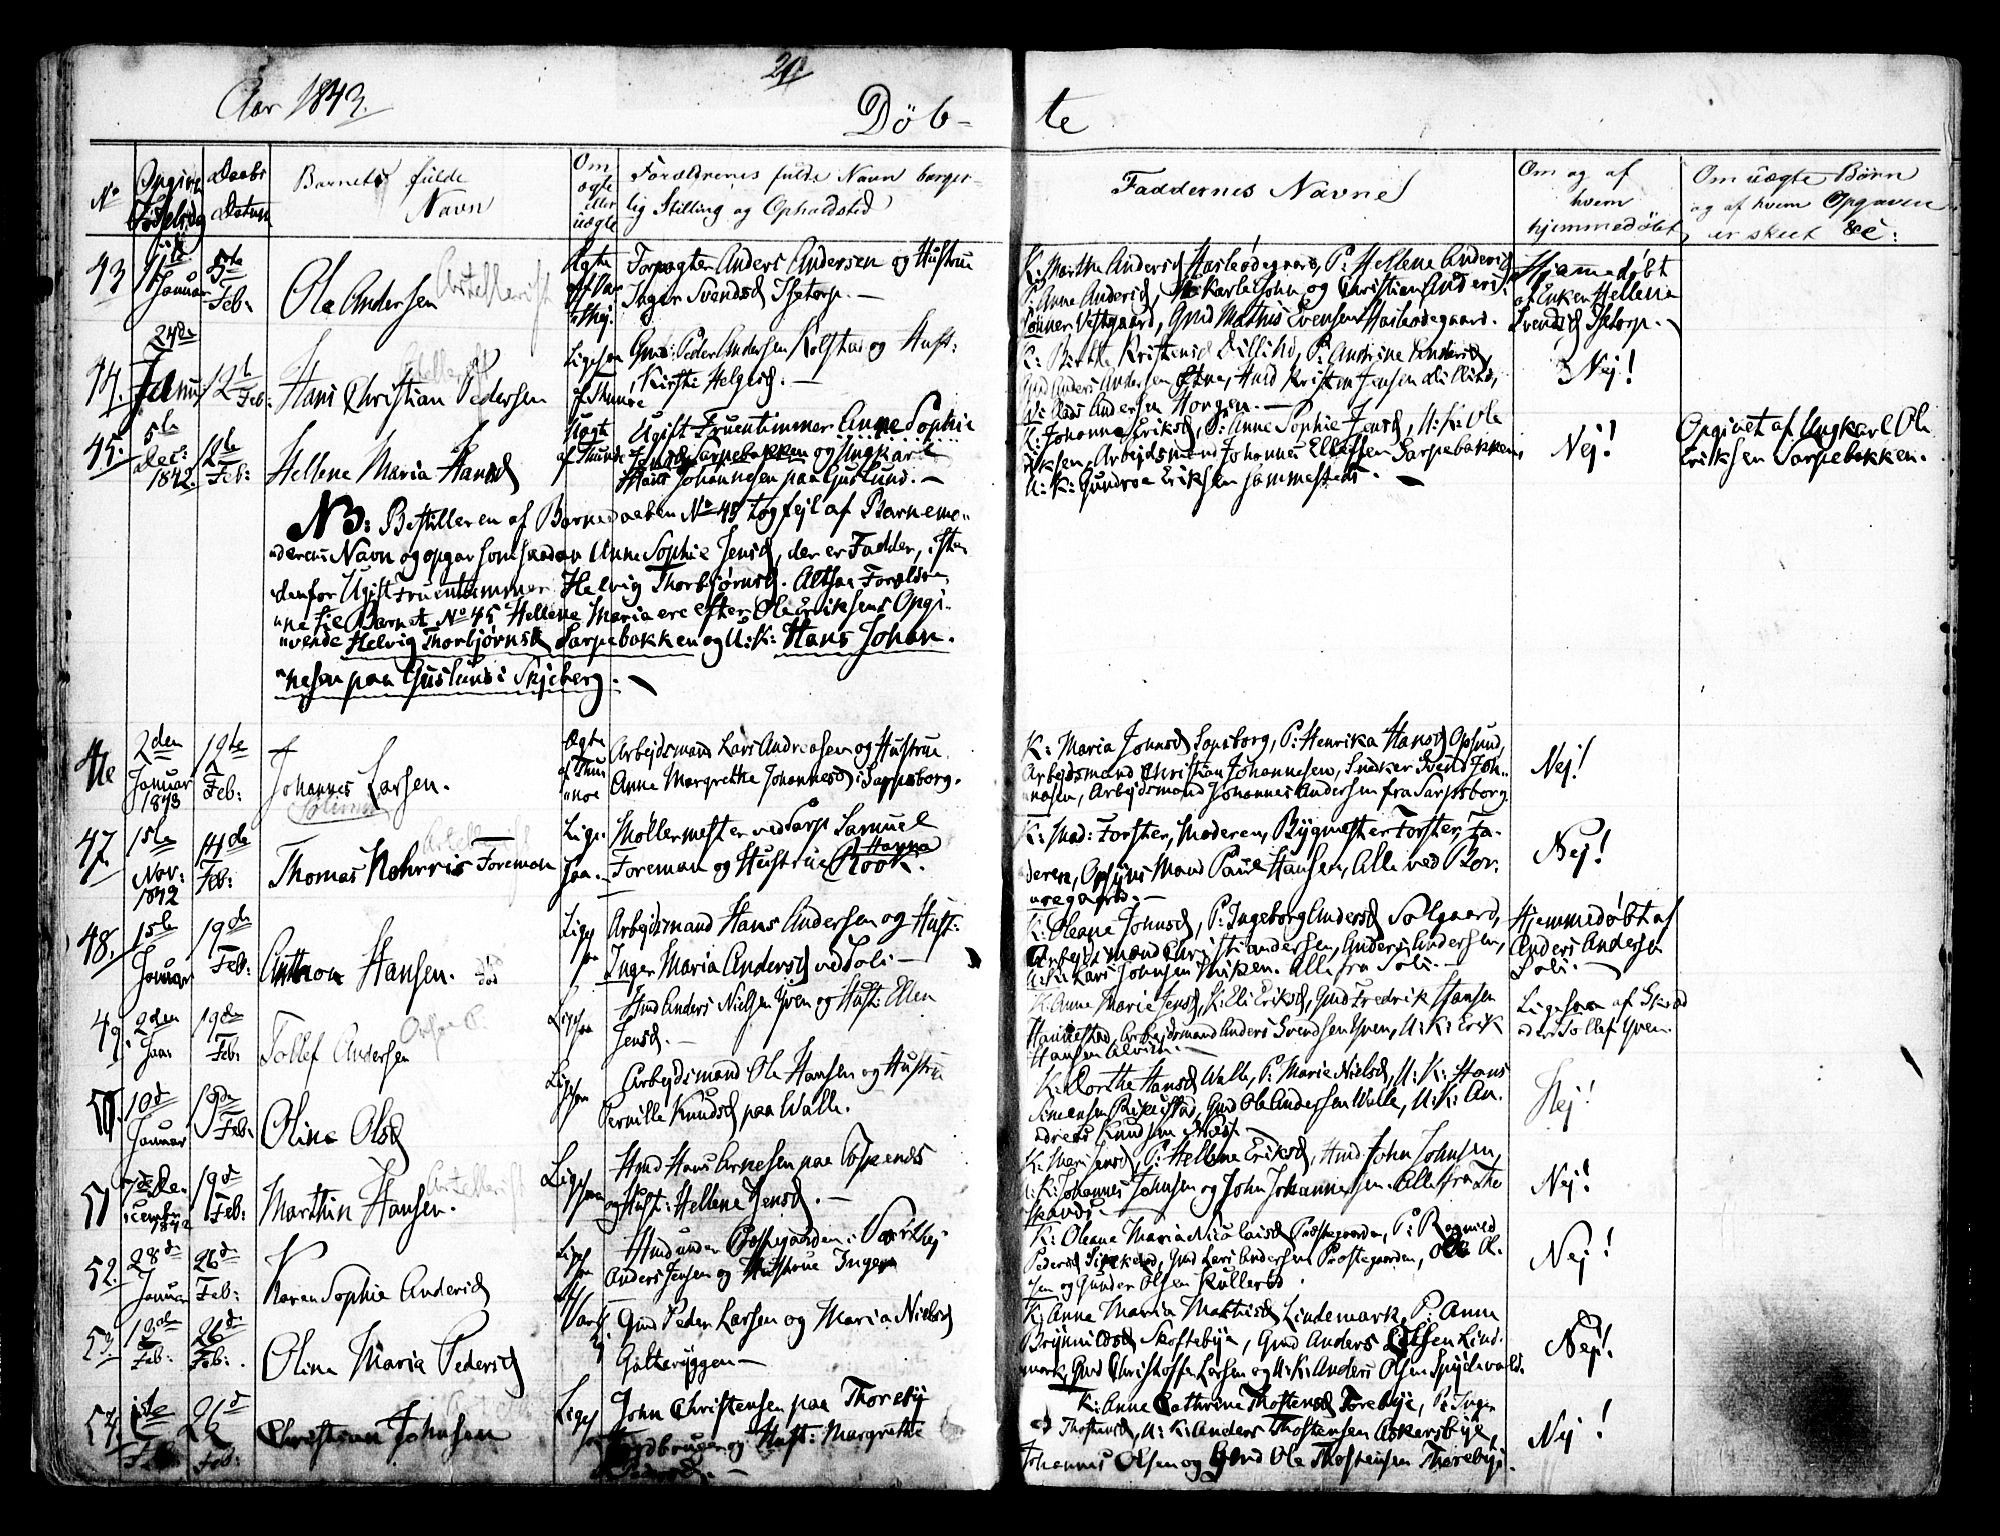 20
Aar 1843.
Döb-
te
No
Opgivet Fødselsdag
Daabs Datum
Barnets fulde
Navn
Om ægte eller uægte
Forældrenes fulde Navn borger-
lig Stilling og Opholdsted
Faddernes Navne
Om og af
hvem
hjemmedöbt
Om uægte Börn
og af hvem Opgaven
er skeet &c:
43
Januar
5te Feb:
Ole Andersen
Ægte
Forpagter Anders Andersen og Hustrue
Inger Svendsd
K: Marthe Andersd Hasleødegaard, P: Hellene Andersd
P: Anne Andersd, Karle John og Christian Anders.
Sönner Vestgaard, Gmd Mathis Evensen Hasleødegaard.
Hjemmedøbt
af Enken Hellene
Svendsd
44.
24de Janu
12te Feb:
Hans Christian Pedersen
Ligesaa
Gmd: Peder Andersen Kolstad og Hust:
Kirsti Helgesd. —
K: Birthe Kristensd P: Andrine Andersd,
Gmd Anders Andersen Hmd Kristen Jensen
Andersen Horgen. —
Nej!
45.
5te Dec: 1842.
12te Feb:
Hellene Maria Hansd
Uægte
Ugift Fruentimmer Anne Sophie
Jensd Sarpebakken og Ungkarl
Hans Johannesen paa Guslund. —
K: Johanne Eriksd, P: Anne Sophie Jensd, U: K: Ole
Eriksen, Arbejdsmand Johannes Ellefsen Sarpebakken,
U: K: Gundroe Eriksen sammesteds. —
Nej!
Opgivet af Ungkarl Ole
Eriksen Sarpebakken.
NB: Bestilleren af Barnedaaben No 45 tog fejl af Barnemo-
derens Navn og opgav som saadan Anne Sophie Jensd, der er Fadder, iste-
denfor Ugift Fruentimmer Helvig Thorbjørnsd. Altsaa Foræld-
ne til Barnet No 45 Hellene Maria ere efter Ole Eriksens Opgi-
vende Helvig Thorbjørnsd Sarpebakken og U: K: Hans Johan-
nesen paa Guslund i Skjeberg. —
46
2den Januar 1843
19te Feb:
Johannes Larsen.
Ægte
Arbejdsmand Lars Andreasen og Hustrue
Anne Margrethe Johannesd i Sarpsborg.
K: Maria Johnsd Sarpsborg, P: Henrika Hansd Opsund,
Arbejdsmand Christian Johannesen, Snedker Svend Joh-
nasen, Arbejdsmand Johannes Andersen fra Sarpsborg.
Nej!
47
1ste Nov: 1842
Feb:
Thomas Nohrris Foreman
Lige-
saa.
Møllermester ved Sarp Samuel
Foreman og Hustrue Hanna Rook.
K: Mad: Forster, Moderen, Bygmester Forster, Fa-
deren, Opsyns Mand Paul Hansen, Alle ved Bor-
regaard. —
Nej!
48.
1ste Januar
19de Feb:
Anthon Hansen.
død
Ligesaa
Arbejdsmand Hans Andersen og Hust:
Inger Maria Andersd ved Soli —
K: Oleane Johnsd, P: Ingeborg Andersd Solgaard,
Arbejdsmand Christian Andersen, Anders Andersen,
U: K: Lars Johnsen Alle fra Soli. —
Hjemmedøbt af
Anders Andersen
Soli. —
49.
2den Jan:
19de Feb:
Tollef Andersen
Ligesaa
Hmd Anders Nielsen Yven og Hust: Ellen
Jensd. —
K: Anne Marie Jensd, K: Eli Eriksd, Gmd Fredrik Hansen
Hannestad, Arbejdsmand Anders Svendsen Yven, U: K: Erik
Hansen Alvim. —
Ligesaa af
Tollef Yven.
50.
10d Januar
19de Feb:
Oline Olsd
Ligesaa
Arbejdsmand Ole Hansen og Hustru
Pernille Knudsd paa Walle.
K: Dorthe Hansd Walle, P: Marie Nielsd, U: K: Hans
Simensen Gmd Ole Andersen Walle, U: K: An-
dreas Knudsen Næs. —
Nej!
51
7de December 1842
19d Feb:
Marthin Hansen.
Ligesaa
Hmd Hans Arnesen paa
og Hust: Hellene Jensd. —
K: Mari Jensd, P: Hellene Eriksd, Hmd John Johnsen,
U: K: Johannes Johnsen og John Johannesen. Alle fra
Nej!
52.
28d Januar
26d Feb:
Karen Sophie Andersd
Ligesaa
Hmd under Præstegaarden i
Anders Jensen og Hustrue Inger
K: Oleane Maria Nicolaisd Præstegaarden, P: Ragnild
Pedersd Gmd Lars Andersen Præstegaarden, Ole Ol-
sen og Gunder Olsen Kullerød
Nej!
53
Feb:
26d Feb:
Oline Maria Pedersd
Gmd Peder Larsen og Maria Nielsd
Galteryggen —
K: Anne Maria Mathisd Lindemark, P: Anne
Brynnildsd Skoftebye, Gmd Anders Lind-
mark, Gmd Christoffer Larsen og U: K: Anders Olsen Spydevold.
Nej!
54.
Feb:
26d Feb:
Christian Johnsen
Ligesaa
John Christensen paa Thoreby
Jordbruger og Hust: Margrethe
K: Anne Cathrine Thostensd Torebye, P: Inger
Thostensd, U: K: Anders Thostensen Askersbye,
Johannes Olsen og Gmd Ole Thostensen Thorebye.
Nej!